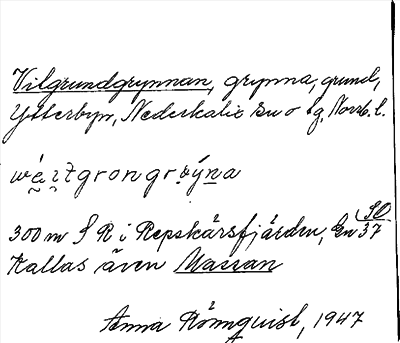 Vitgrundgrynnan, grynna, grund,
Ytterbyn, Nederkalix sn o lg, Norrb. l.
wé̬ɽtgrongrøýna
300 m S R i Repskärsfjärden, En 37 SO
Kallas även Massan
Anna Rönnquist, 1947